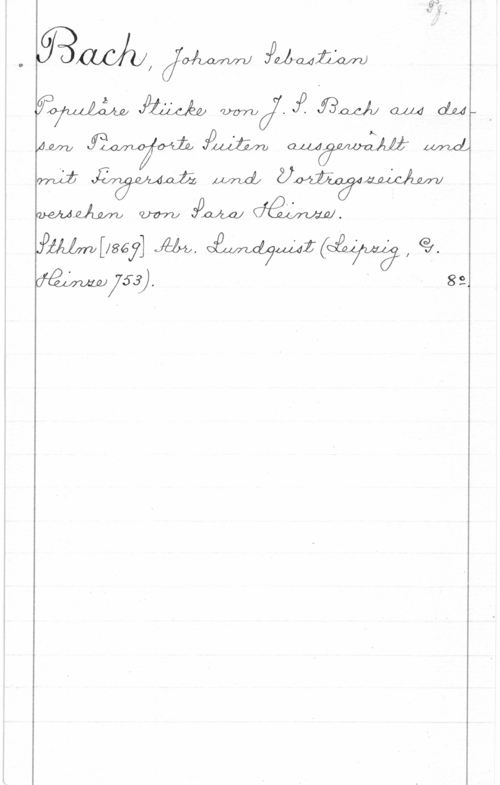 Pf.
Bach, Johann Sebastian
Populäre Stücke von J. S. Bach aus des-
sen Pianoforte Suiten ausgewählt und
mit Fingersatz und Vortragszeichen
versehen von Sara Heinze.
Sthlm [1869] Abr. Lundquist (Leipzig, G.
Heinze 753). 8º.